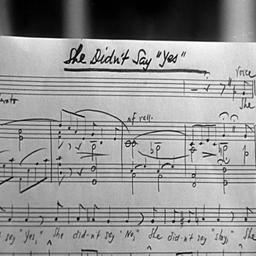 She Didn't Say "Yes"
Voice
She
say "Yes," She did-n't say "No," She did-n't say "stay," She